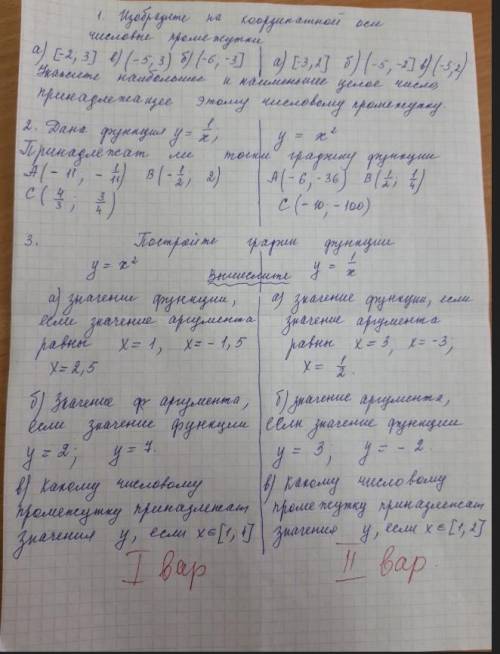 1. Изобразите на координатной оси
числовые промежутки
а) [-2, 3] в) (-5, 3) б) (-6, -3] а) [-3, 2] б) (-5, -2] в) (-3, 2)
Укажите наибольшее и наименьшее целое число,
принадлежащее этому числовому промежутку.
2. Дана функция y = 1/x, y = x²
Принадлежат ли точки графику функции
A(-11, -1/11) B(-1/2, 2) A(-6, -36) B(1/2; 1/4)
C(4/3; 3/4) C(-10; -100)
3. Постройте график функции
y = x² y = 1/x
Вычислите
а) значение функции,
если значение аргумента
равны x = 1, x = -1,5
x = 2,5
б) Значение ф аргумента,
если значение функции
y = 2; y = 7.
в) Какому числовому
промежутку приназлежат
значения y, если x ∈ [1, 4]
I вар
а) значение функции, если
значение аргумента
равны x = 3, x = -3;
x = 1/2.
б) значение аргумента,
если значение функции
y = 3, y = -2.
в) Какому числовому
промежутку приназлежат
значения y, если x ∈ [1, 2]
II вар.